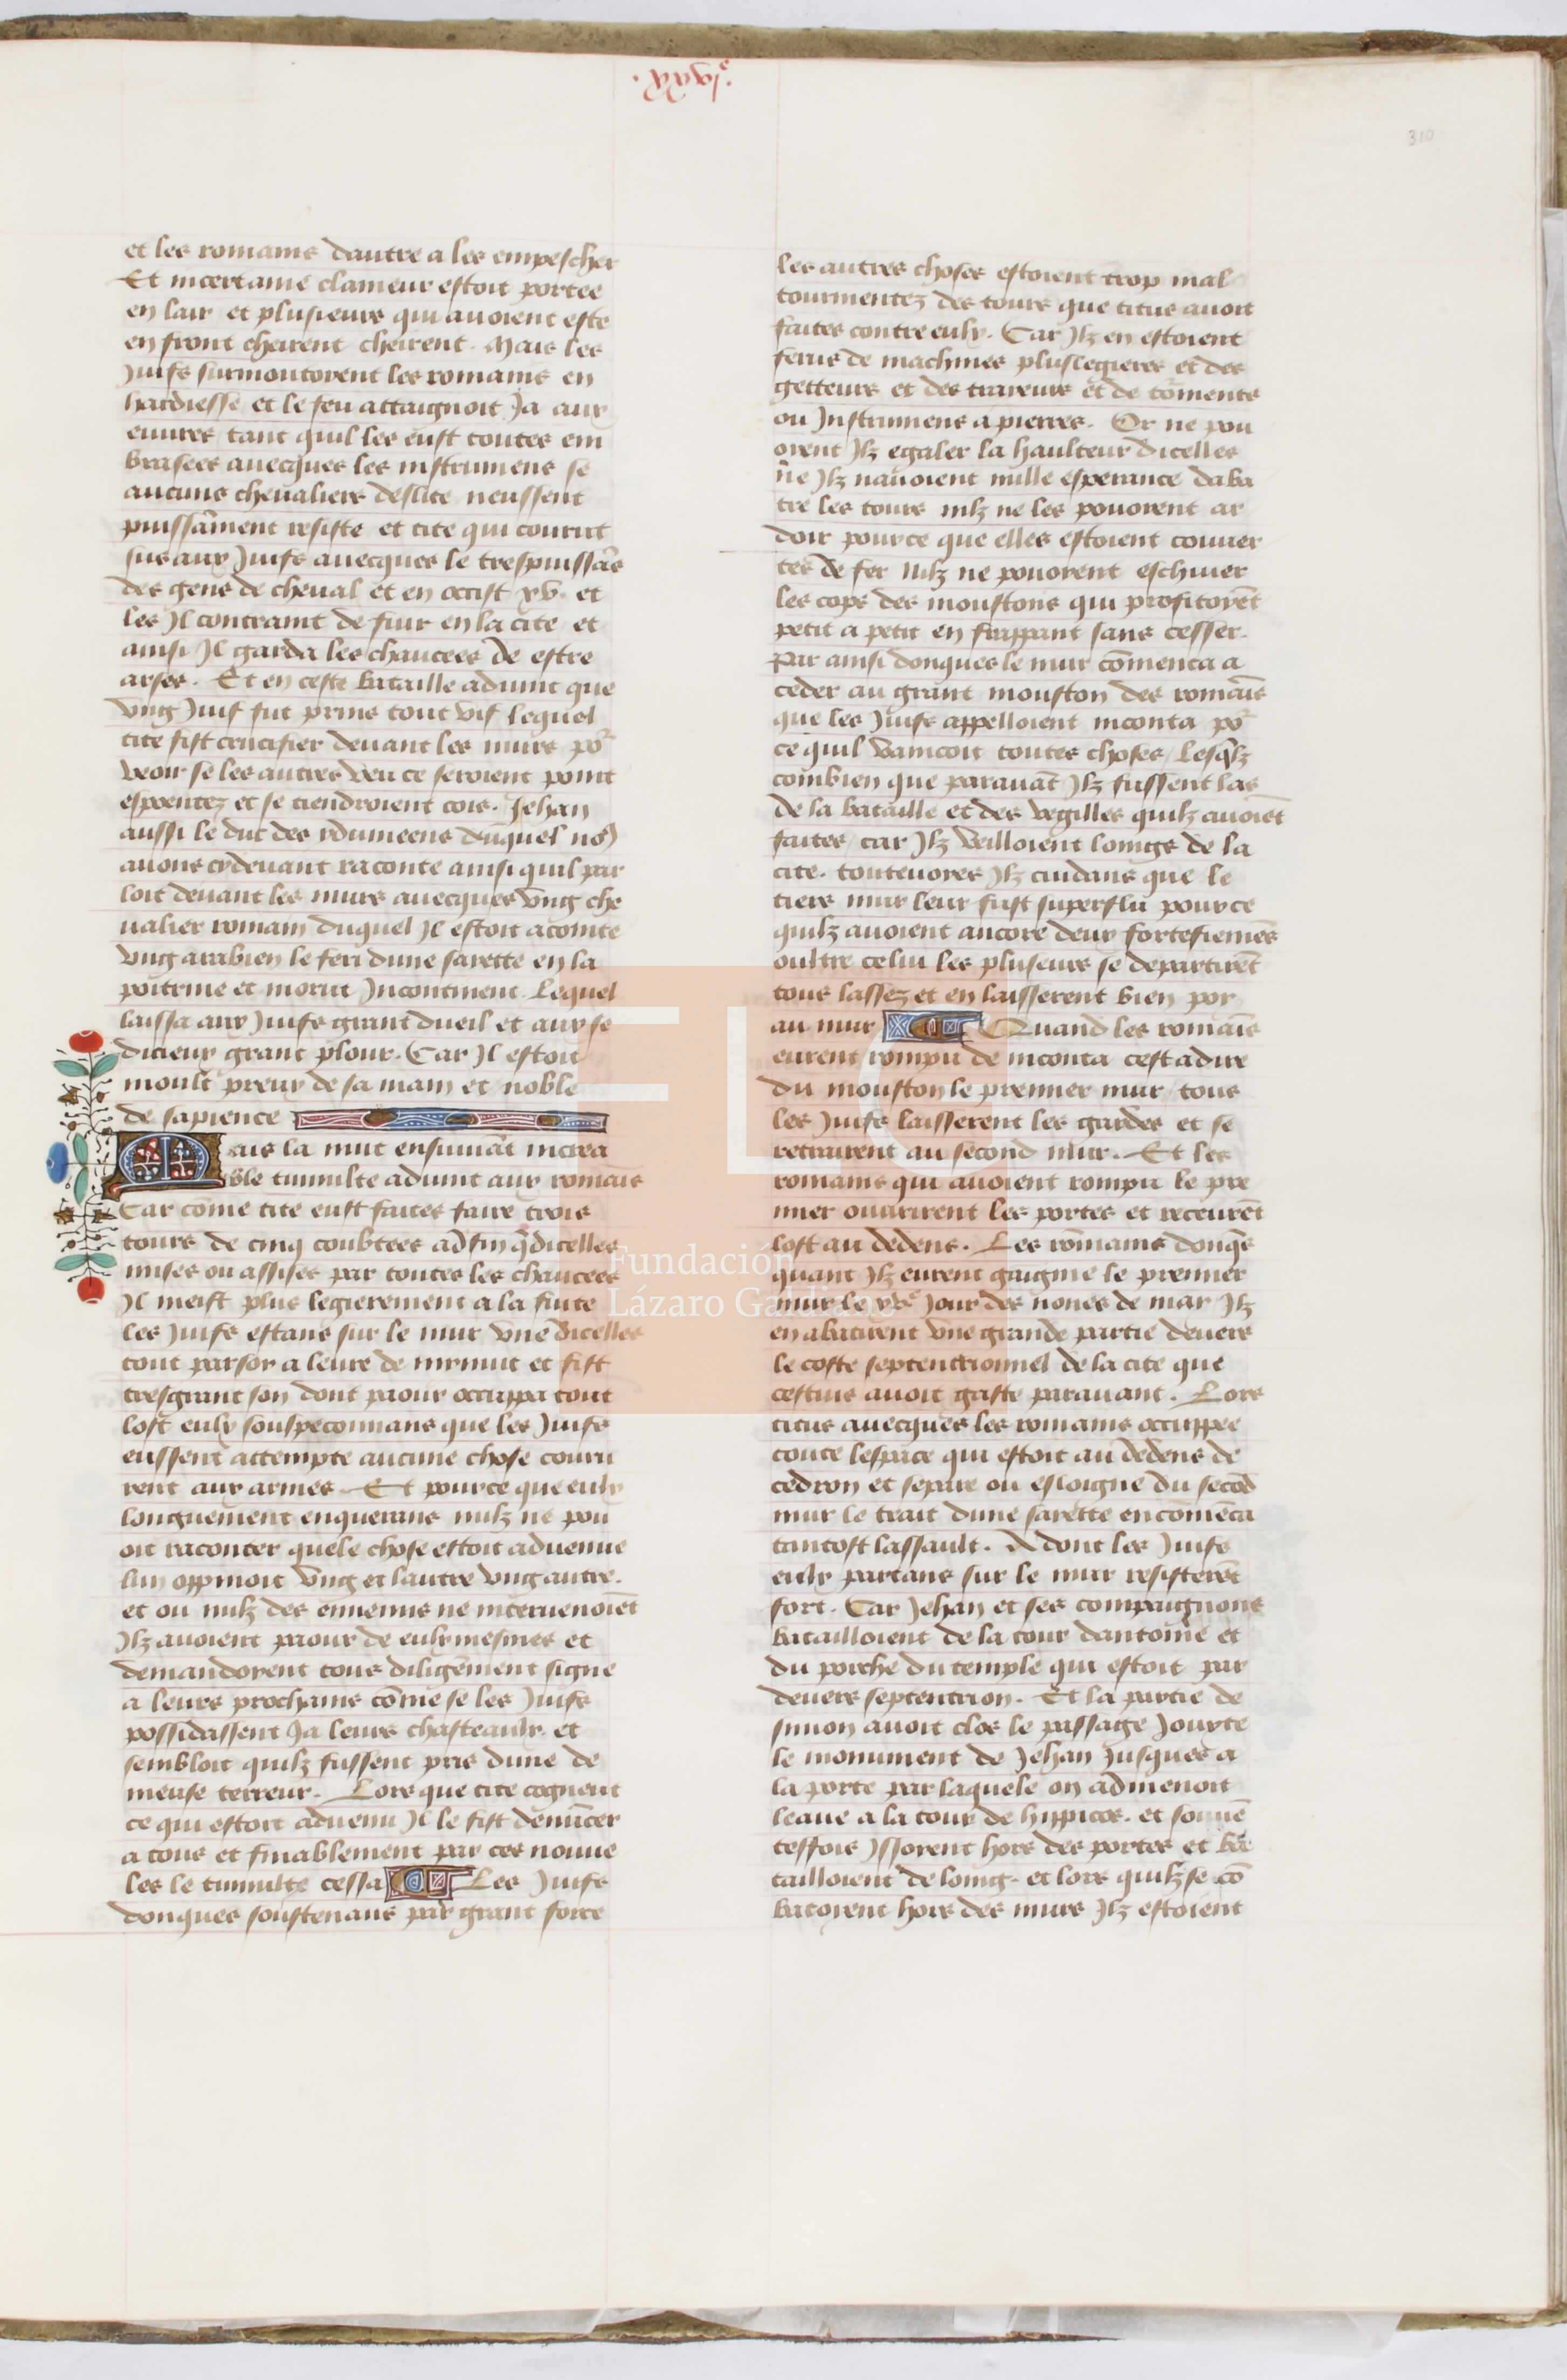 310
et les romains dautre a les empescher
Et incertaine clameur estoit portee
en lair et plusieurs qui auoient este
en front cheirent cheirent. Mais les
Juifs surmontoyent les romains en
hardiesse et le feu attaignoit Ja aux
euures tant quil les eust toutes em
brasees auecques les instrumens se
aucuns cheualiers deslite neussent
puissāment resiste et tite qui courut
sus aux Juifs auecques le trespuissās
des gens de cheual et en occist xv. et
les Jl contraint de fuir en la cite et
ainsi Jl garda les chaucees de estre
arses. Et en ceste bataille aduint que
vng Juif fut prins tout vif lequel
tite fist crucifier deuant les murs po^r
veoir se les autres veu ce seroient point
espoentez et se tiendroient cois. Jehan
aussi le duc des ydumeens duquel no9
auons cy deuant raconte ainsi quil par
loit deuant les murs auecques vng che
ualier romain duquel Jl estoit acointe
vng arabien le feri dune sarette en la
poitrine et morut Jncontinent. Lequel
laissa aux Juifs grant dueil et aux se
dicieux grant plour. Car Jl estoit
moult preux de sa main et noble
de sapience
Mais la nuit ensuiuāt increa
ble tumulte aduint aux romais
Car cōme tite eust faites faire trois
tours de cinq coubtees ad fin q̄ dicelles
mises ou assises par toutes les chaucees
Jl meist plus legierement a la fuite
les Juifs estans sur le mur vne dicelles
tout par soy a leure de mynuit et fist
tresgrant son dont paour occuppa tout
lost eulx souspeconnans que les Juifs
eussent attempte aucune chose couru
rent aux armes. Et pource que eulx
longuement enquerans nulz ne pou
oit raconter quele chose estoit aduenue
lun oppinoit vng et lautre vng autre.
et ou nulz des ennemis ne interuenoiēt
Jlz auoient paour de eulx mesmes et
demandoyent tous diligēment signe
a leurs prochains cōme se les Juifs
possidassent Ja leurs chasteaulx. et
sembloit quilz fussent pris dune de
meuse terreur. Lors que tite cogneut
ce qui estoit aduenu Jl le fist denūcer
a tous et finablement par ces nouue
les le tumulte cessa Les Juifs
donques soustenans par grant force
les autres choses estoient trop mal
tourmentez des tours que titus auoit
faites contre eulx. Car Jlz en estoient
ferus de machines plus legieres et des
getteurs et des trayeurs et de tōments
ou Jnstrumens a pierres. Or ne pou
oient Jlz egaler la haulteur dicelles
ne Jlz nauoient nulle esperance daba
tre les tours nilz ne les pouoyent ar
doir pource que elles estoient couuer
tes de fer Nilz ne pouoyent eschiuer
les cops des moustons qui profitoyēt
petit a petit en frappant sans cesser.
Par ainsi donques le mur cōmenca a
ceder au grant mouston des romais
que les Juifs appelloient niconta po^r
ce quil vaincoit toutes choses / Lesq̄lz
combien que parauāt Jlz fussent las
de la bataille et des vegilles quilz auoiēt
faites / car Jlz veilloient loings de la
cite. touteuoyes Jlz cuidans que le
tiers mur leur fust superflu pource
quilz auoient ancore deux fortefiemēs
oultre celui les pluseurs se departirēt
tous lassez et en laisserent bien poy
au mur Quand les romais
eurent rompu de niconta cest adire
du mouston le premier mur / tous
les Juifs laisserent les gardes et se
retrairent au second mur. Et les
romains qui auoient rompu le pre
mier ouurirent les portes et receurēt
lost au dedens. Les romains donq̄s
quant Jlz eurent gaigne le premier
mur le xv^e Jour des nones de may Jlz
en abatirent vne grande partie deuers
le coste septentrionnel de la cite que
cestius auoit gaste parauant. Lors
titus auecques les romains occuppee
toute lespace qui estoit au dedens de
cedron et separe ou esloigne du secōd
mur le trait dune sarette en cōmēca
tantost lassault. A dont les Juifs
eulx partans sur le mur resisterēt
fort. Car Jehan et ses compaignons
batailloient de la tour dantoine et
du porche du temple qui estoit par
deuers septentrion. Et la partie de
simon auoit clos le passage Jouxte
le monument de Jehan Jusques a
la porte par laquele on admenoit
leaue a la tour de hyppicos. et souuē
teffois yssoyent hors des portes et ba
tailloient de loing. et lors quilz se cō
batoyent hors des murs Jlz estoient
Fundación
Lázaro Galdiano